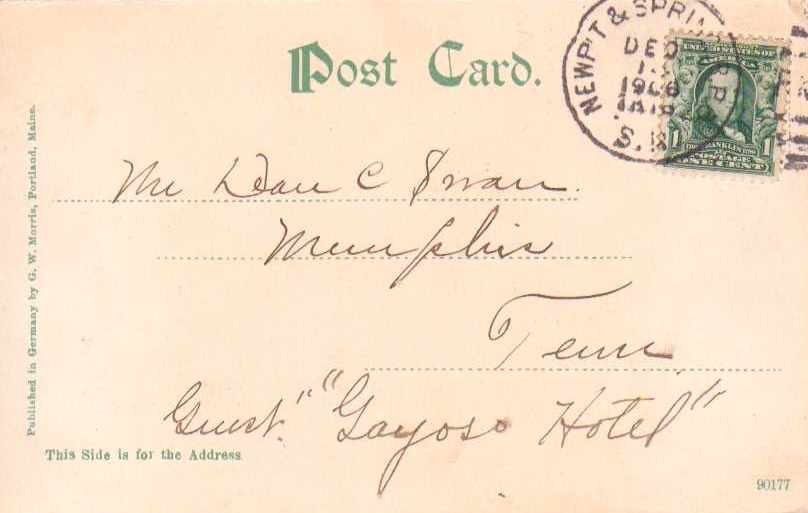 Post Card.
NEWP'T & SPRI
DEC
1906
S.
UNITED STATES OF
AMERICA
FRANKLIN
1 1
POSTAGE
ONE CENT
Mr Dan C Swan.
Memphis
Tenn
Guest. "
"Gayoso Hotel"
This Side is for the Address.
Published in Germany by G. W. Morris, Portland, Maine.
90177